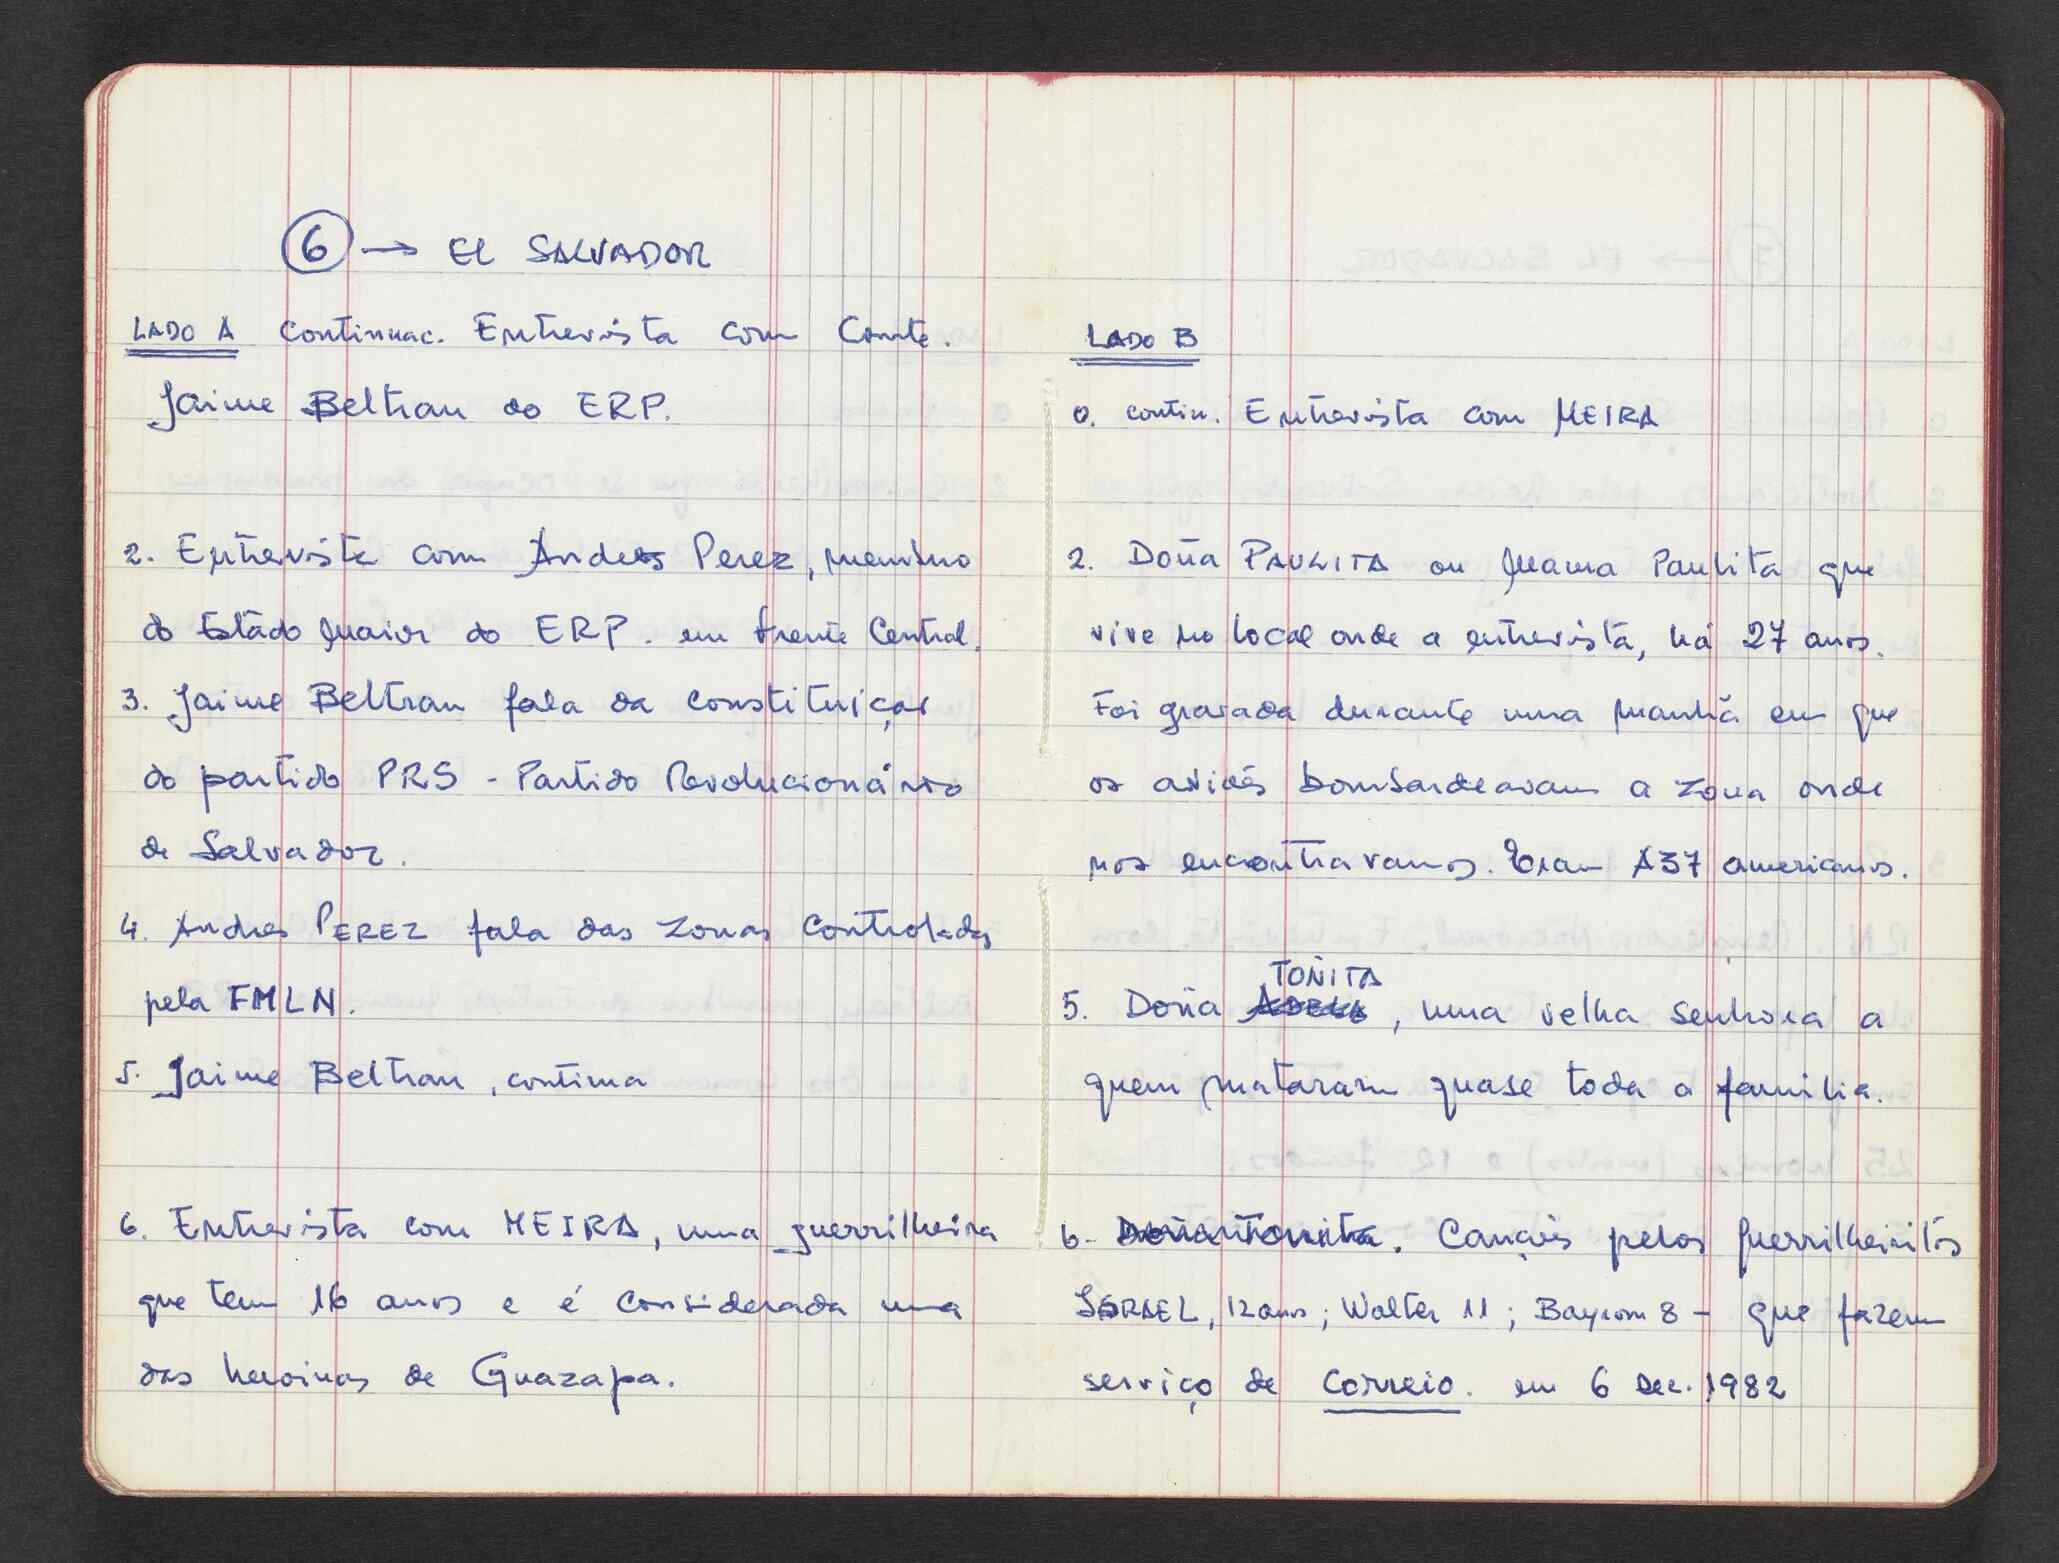 6 → El SALVADOR
LADO A Continuac. Entrevista com Comte.
Jaime Beltran do ERP.
2. Entrevista com Andres Perez, membro
do Estado Maior do ERP. em frente Central.
3. Jaime Beltran fala da Constituição
do partido PRS - Partido Revolucionário
de Salvador.
4. Andres PEREZ fala das Zonas Controladas
pela FMLN.
5. Jaime Beltran, continua
6. Entrevista com MEIRA, uma guerrilheira
que tem 16 anos e é considerada uma
das heroinas de Guazapa.
LADO B
0. contin. Entrevista com MEIRA
2. Doña PAULITA ou Mama Paulita que
vive no local onde a entrevista, há 27 anos.
Foi gravada durante uma manhã em que
os aviões bombardeavam a Zona onde
nos encontravamos. Eram A37 americanos.
TOÑITA
5. Doña ADELA, uma velha senhora a
quem mataram quase toda a familia.
6- Doña Tonita. Canções pelos guerrilheiritos
ISRAEL, 12 anos; Walter 11; Bayron 8 - que fazem
serviço de Correio. em 6 Dec. 1982